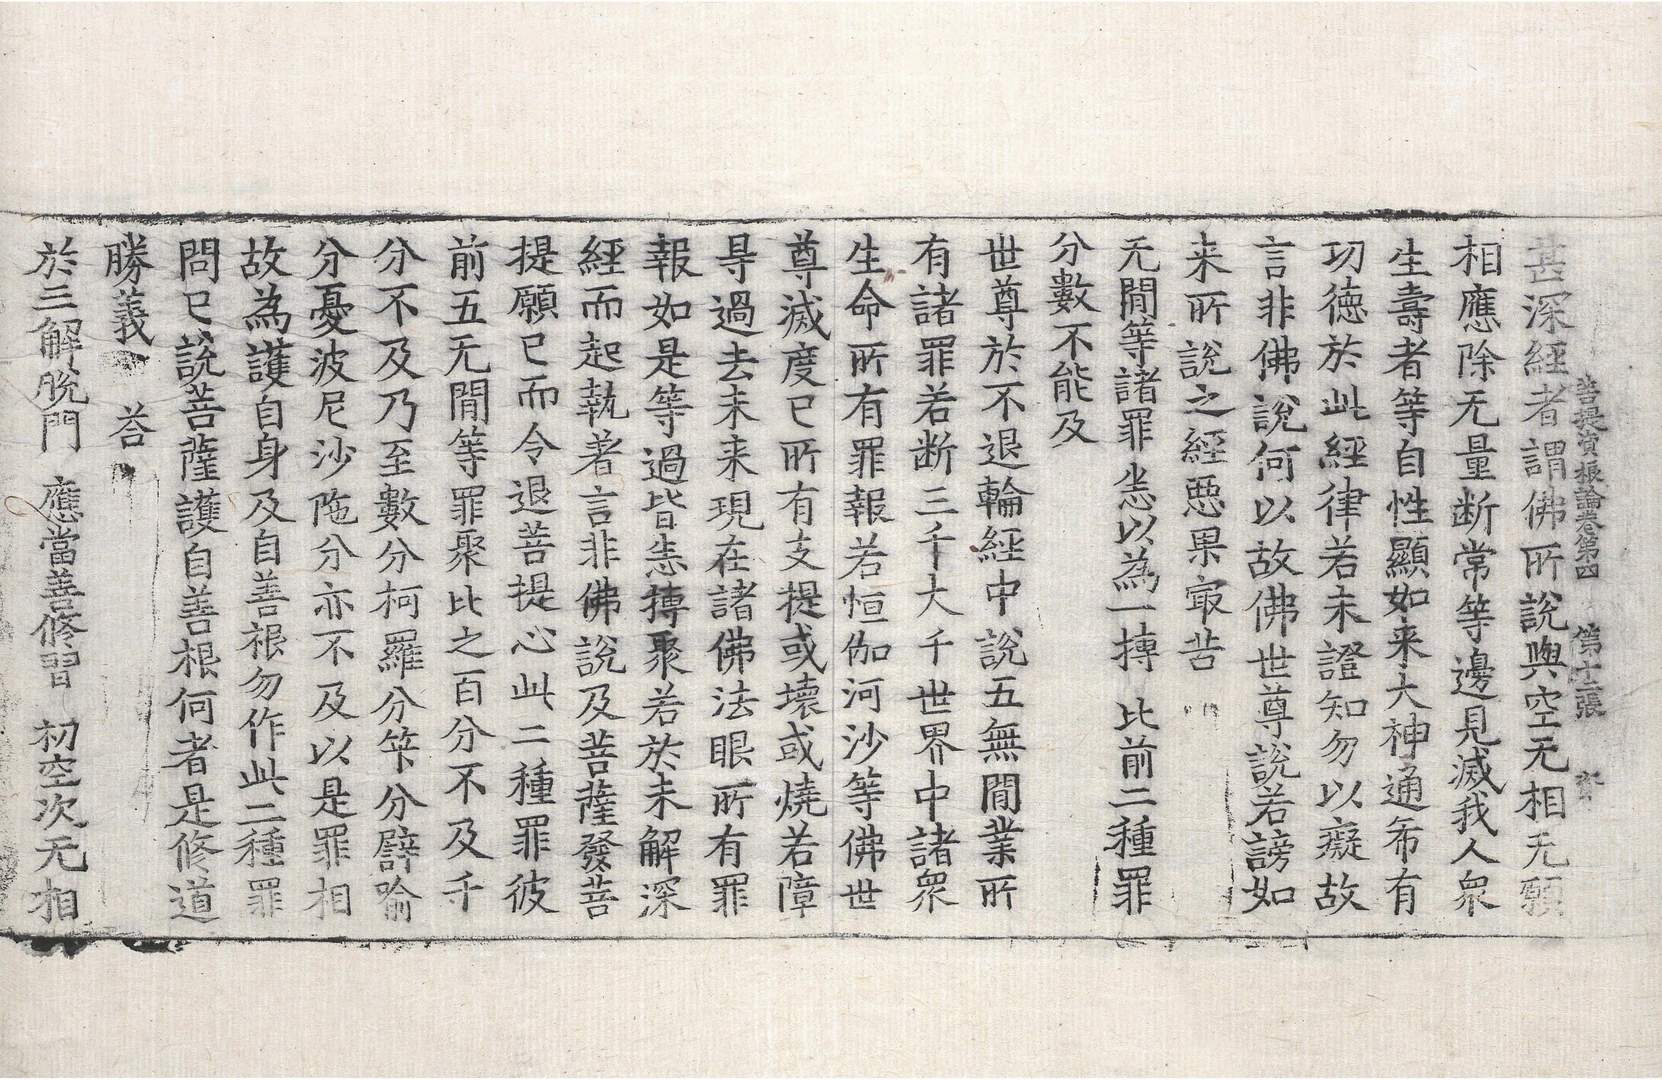 菩提資粮論卷第四 第十二張
甚深經者謂佛所說與空无相无願
相應除无量断常等邊見滅我人衆
生壽者等自性顯如来大神通希有
功德於此經律若未證知勿以癡故
言非佛說何以故佛世尊說若謗如
来所說之經惡果㝡苦
无閒等諸罪 悉以為一摶 比前二種罪
分數不能及
世尊於不退輪經中說五無閒業所
有諸罪若断三千大千世界中諸衆
生命所有罪報若恒伽河沙等佛世
尊滅度已所有支提或壞或燒若障
㝵過去未来現在諸佛法眼所有罪
報如是等過皆悉摶聚若於未解深
經而起執著言非佛說及菩薩發菩
提願已而令退菩提心此二種罪彼
前五无閒等罪聚比之百分不及千
分不及乃至數分柯羅分筭分譬喻
分憂波尼沙陁分亦不及以是罪相
故為護自身及自善根勿作此二種罪
問已說菩薩護自善根何者是修道
勝義 荅
於三解脫門 應當善修習 初空次无相